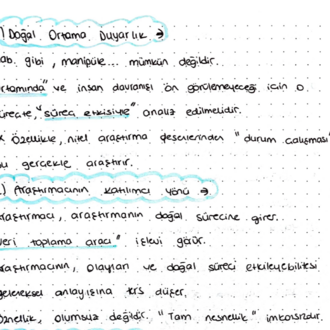 ) Doğal Ortama Duyarlık →
ab. gibi, manipüle... mümkün değildir.
ortamında" ve insan davranışı ön görülemeyeceği için o
süreçte, "süreç etkisiyle" analiz edilmelidir.
* Özellikle, nitel araştırma desenlerinden "durum çalışması"
bu gerçekle araştırır.
.) Araştırmacının katılımcı yönü →
araştırmacı, araştırmanın doğal sürecine girer.
veri toplama aracı" işlevi görür.
araştırmacının, olayları ve doğal süreci etkileyebilitesi
geleneksel anlayışına ters düşer.
Öznellik, olumsuz değildir. "Tam nesnellik" imkansızdır.